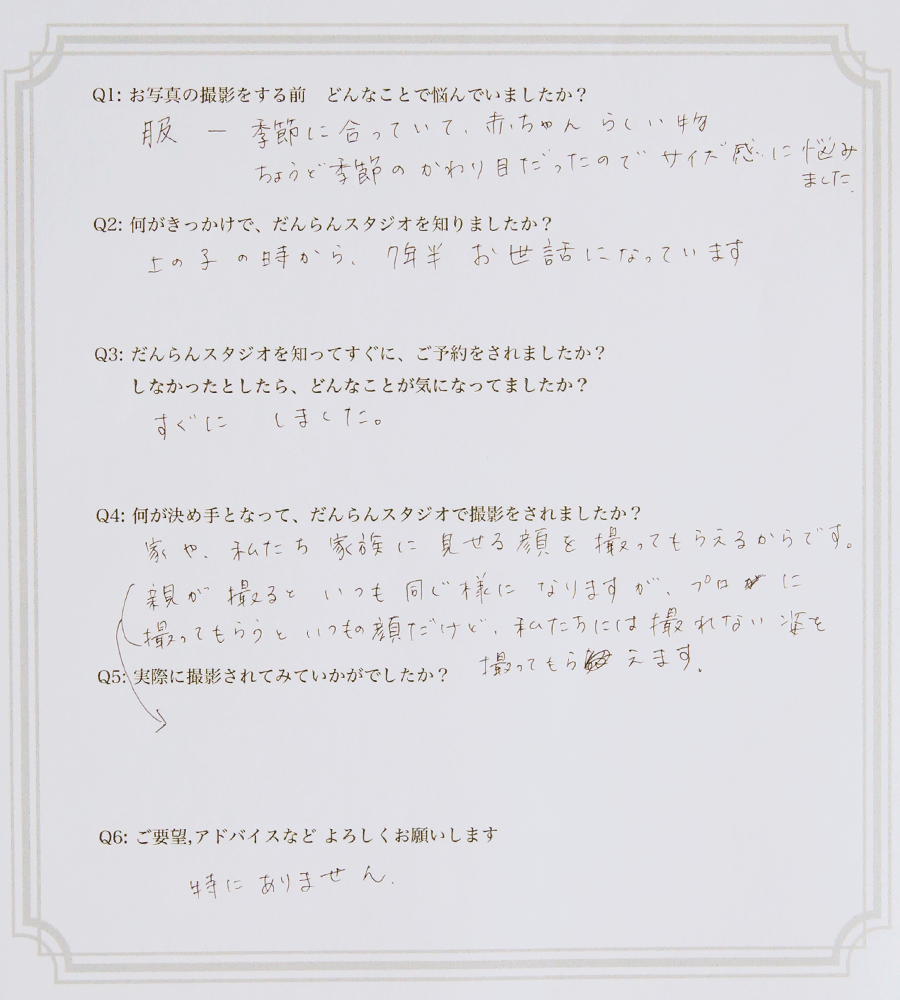 Q1: お写真の撮影をする前　どんなことで悩んでいましたか？
服 ー 季節に合っていて、赤ちゃんらしい物
ちょうど季節のかわり目だったので サイズ感に悩み
ました.
Q2: 何がきっかけで、だんらんスタジオを知りましたか？
上の子の時から、7年半 お世話になっています
Q3: だんらんスタジオを知ってすぐに、ご予約をされましたか？
しなかったとしたら、どんなことが気になってましたか？
すぐに しました。
Q4: 何が決め手となって、だんらんスタジオで撮影をされましたか？
家や、私たち家族に見せる顔を撮ってもらえるからです。
親が撮るといつも同じ様になりますが、プロに
撮ってもらうといつもの顔だけど、私たちには撮れない姿を
撮ってもらえます.
Q5: 実際に撮影されてみていかがでしたか？
Q6: ご要望,アドバイスなど よろしくお願いします
特にありません.